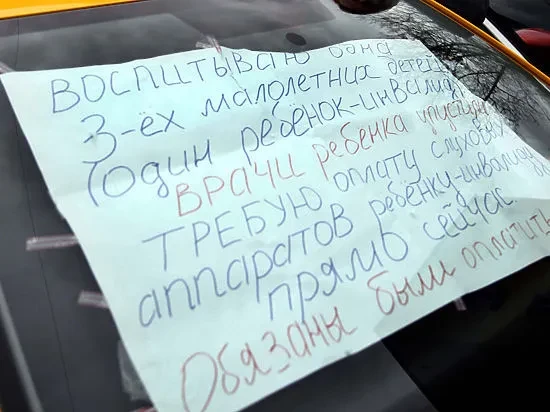 ВОСПИТЫВАЮ одна
3-ёх малолетних детей
(один ребёнок-инвалид
ВРАЧИ ребёнка упустили
ТРЕБУЮ оплату слуховых
аппаратов ребёнку-инвалиду
ПРЯМО сейчас.
Обязаны были оплатить